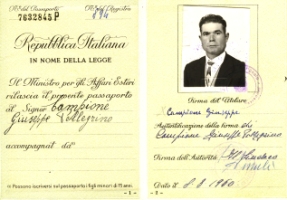 N. del Passaporto
N. del Registro
7632845 P
894
Repubblica Italiana
IN NOME DELLA LEGGE
Il Ministro per gli Affari Esteri
rilascia il presente passaporto
al Signor Campione
Giuseppe Pellegrino
accompagnat da
- 1 -
Firma del Titolare
Campione Giuseppe
Autenticazione della firma di
Campione Giuseppe Pellegrino
Firma dell'Autorità
Data il 8.8.1960